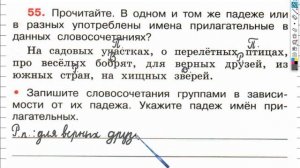 55. Прочитайте. В одном и том же падеже или
в разных употреблены имена прилагательные в
данных словосочетаниях?
П. П.
На садовых участках, о перелётных птицах,
про весёлых бобрят, для верных друзей, из
южных стран, на хищных зверей.
• Запишите словосочетания группами в зависи-
мости от их падежа. Укажите падеж имён при-
лагательных.
Р.п.: для верных друз